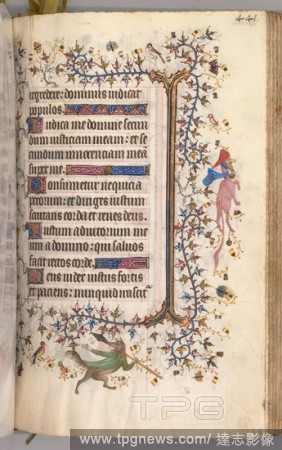 441.
regredere: dominus iudicat
populos.
Iudica me domine secun
dum iusticiam meam: et se
cundum innocenciam meā
super me.
Consumetur nequicia
p̄corum: et diriges iustum
scrutans corda et renes deus.
Iustum adiutorium me
um a domino: qui saluos
facit rectos corde.
Deus iudex iustus fortis
et paciens: nunquid irascit᷑
TPG
www.tpgnews.com / 達志影像